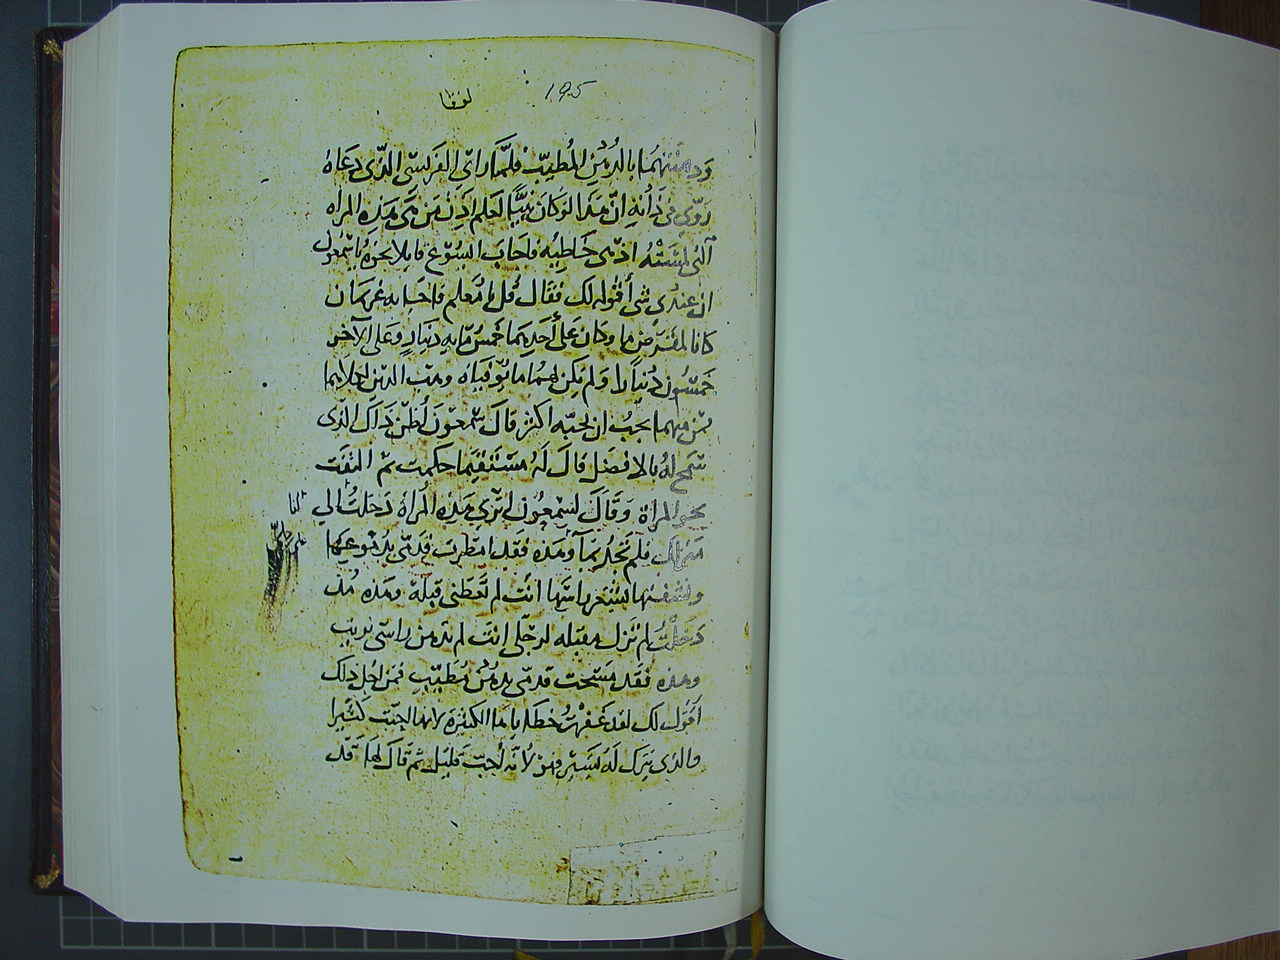 لوقا
195
ودهنتهما بالدهن المطيب فلما راي الفريسي الذي دعاه
روي في ذاته ان هذا لو كان نبيا لعلم اذن من هي هذه المراه
التي لمسته اذ هي خاطيه فاجاب ايسوع قايلا نحوه يا شمعون
ان عندي شي أقوله لك فقال قل يا معلم فاجابه غريمان
كانا لمقرض ما وكان على أحدهما خمس مايه دينار وعلى الآخر
خمسون دينارا ولم يكن لهما ما يوفياه وهب الدين لكلاهما
فمن منهما يجب ان يحبه اكثر قال شمعون أظن ذاك الذي
سمح له بالافضل قال له مستقيما حكمت ثم التفت
نحو المراة وقال لسمعون اتري هذه المراة دخلت الي
منزلك فلم تجد بماء وهذه فقد امطرت قدمي بدموعها
ونشفتها بشعر راسها انت لم تعطني قبلة وهذه منذ
دخلت لم تزل مقبله لرجلي انت لم تدهن راسي بزيت
وهذه فقد مسحت قدمي بدهن مطيب فمن اجل ذلك
اقول لك لقد غفرت خطاياها الكثيرة لانها احبت كثيرا
والذي يترك له يسير فهو لأنه أحب قليل ثم قال لها قد